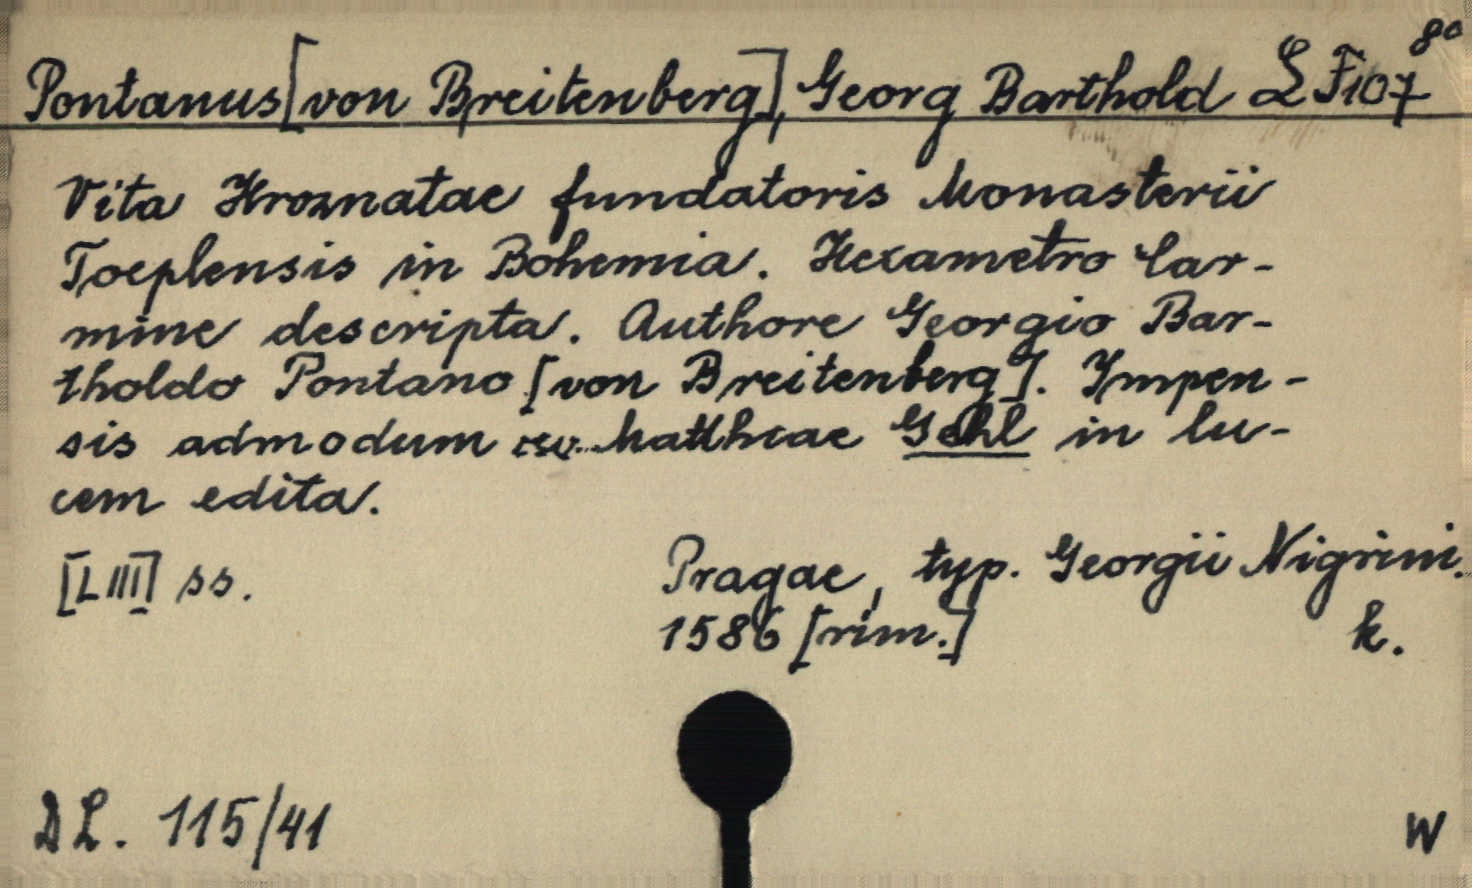 Pontanus [von Breitenberg], Georg Barthold L F 107 8°
Vita Hroznatae fundatoris Monasterii
Toeplensis in Bohemia. Hexametro Car-
mine descripta. Authore Georgio Bar-
tholdo Pontano [von Breitenberg]. Impen-
sis admodum rev. Matthiae Gehl in lu-
cem edita.
[LIII] ss.
Pragae, typ. Georgii Nigrini.
1586 [rim.]
k.
DL. 115/41
W